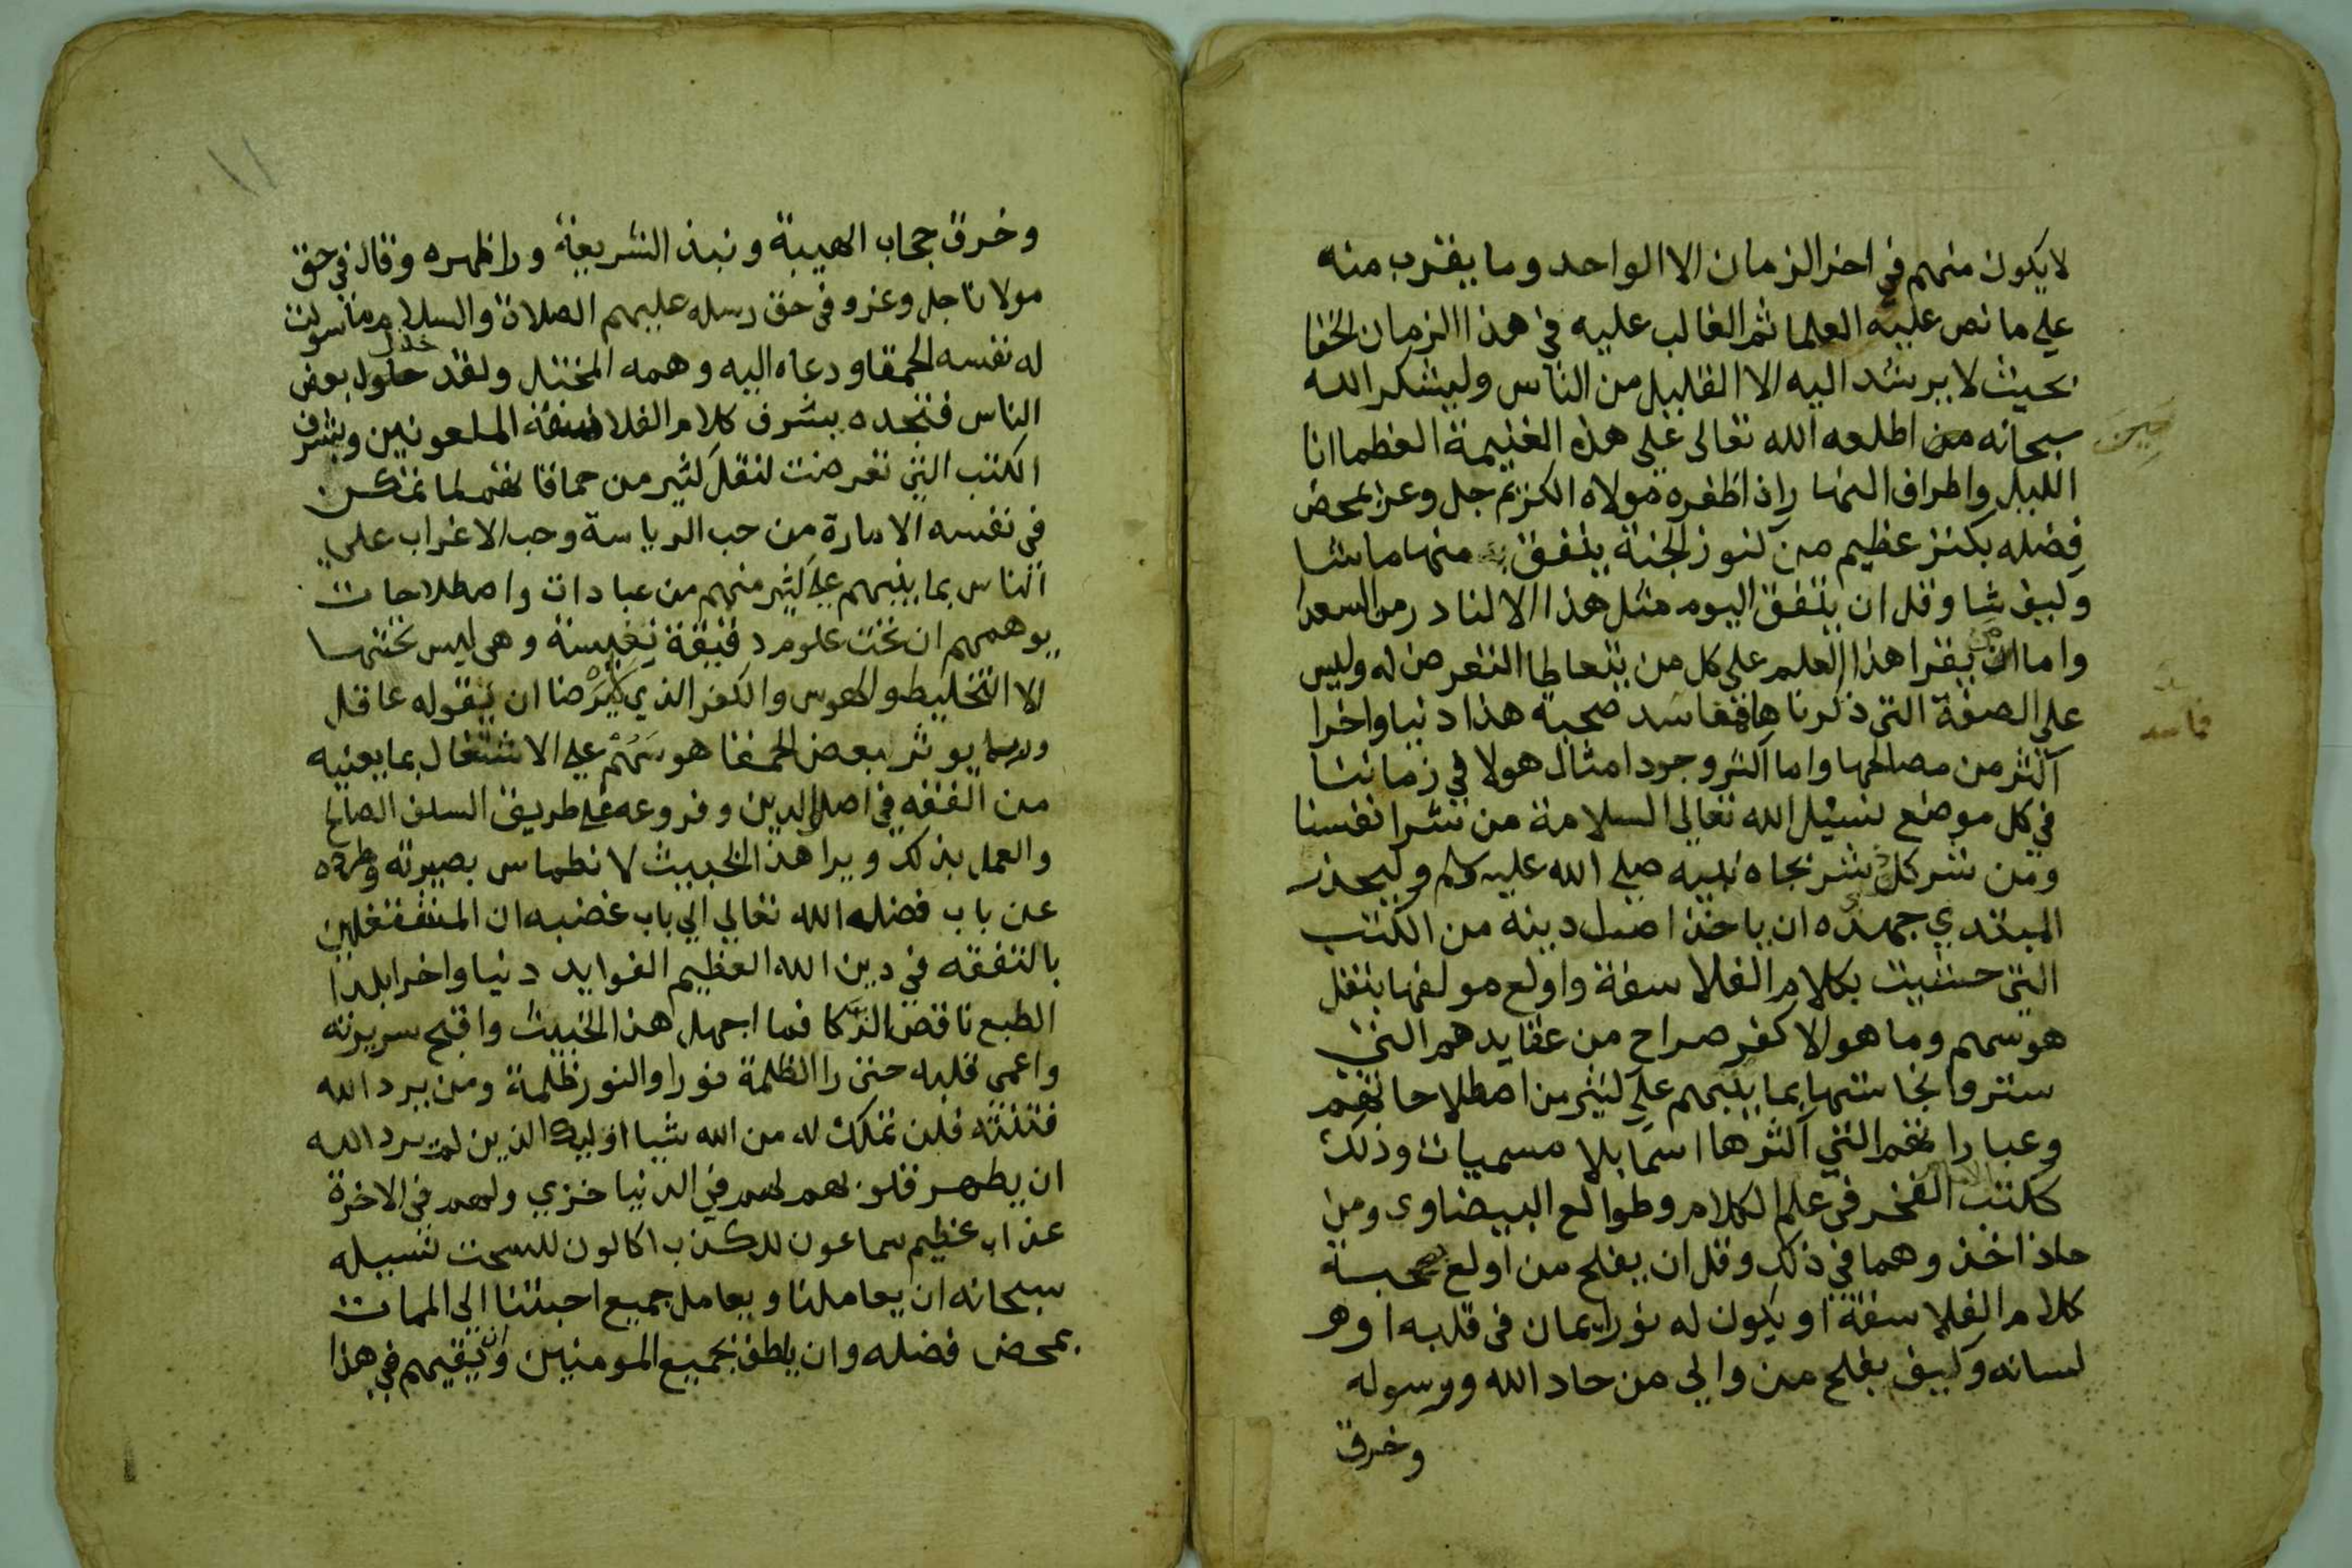 لا يكون منهم في اخر الزمان الا الواحد وما يقرب منه
علي ما نص عليه العلما ثم الغالب عليه في هذا الزمان الخفا
بحيث لا يرشد اليه الا القليل من الناس وليشكر الله
سبحانه من اطلعه الله تعالى على هذه الغنيمة العظما انا
حين
الليل واطراف النها راذ اظفره مولاه الكريم جل وعز بمحض
فضله بكنز عظيم من كنوز الجنة ينفق منها ما شا
وكيف شا وقل ان يتفق اليوم مثل هذا الا لنادر من السعدا
واما ان يقرا هذا العلم على كل من يتعاطا التعرض له وليس
على الصفة التي ذكرناها فمفاسد صحبة هذا دنيا واخرا
فاسد
اكثر من مصالحها وما اكثر وجود امثال هولا في زماننا
في كل موضع نسيل الله تعالى السلامة من شر انفسنا
ومن شر كل شر بجاه نبيه صلي الله عليه وسلم وليحذر
المبتدي جهده ان ياخذ اصل دينه من الكتب
التي حشيت بكلام الفلاسفة واولع مولفها بنقل
هوسهم وما هو الا كفر صراح من عقايدهم التي
ستروا نجاستها بما ينبهم على كثير من اصطلاحاتهم
وعباراتهم التي اكثرها اسما بلا مسميات وذلك
ككتب الفخر في علم الكلام وطوالع البيضاوي ومن
حاذا حذوهما في ذلك وقل ان يفلح من اولع بصحبة
كلام الفلاسفة او يكون له نور ايمان في قلبه او هو
لسانه وكيف يفلح من والى من حاد الله ورسوله
وخرق
١١
وخرق حجاب الهيبة ونبذ الشريعة وراظهره وقال في حق
مولانا جل وعز وفي حق رسله عليهم الصلاة والسلام ما سولت
له نفسه الحمقا ودعاه اليه وهمه المختل ولقد خذل بعض
الناس فتجده يشرف كلام الفلاسفة الملعونين ويشرف
الكتب التي تعرضت لنقل كثير من حماقاتهم لما تمكن
في نفسه الامارة من حب الرياسة وحب الاغراب على
الناس بما ينبهم على كثير منهم من عبادات واصطلاحات
يوهمهم ان تحت علوم دقيقة نفيسة وهي ليس تحتها
الا التخليط والهوس والكفر الذي لا يرضا ان يقوله عاقل
وربما يوثر بعض الحمقا هوسهم على الاشتغال بما يعنيه
من الفقه في اصل الدين وفروعه على طريق السلف الصالح
والعمل بذلك ويرا هذا الخبيث لانطماس بصيرته وطرده
عن باب فضل الله تعالي الي باب غضبه ان المشتغلين
بالتفقه في دين الله العظيم الفوايد دنيا واخرا بلدا
الطبع ناقصى الذكا فما اجهل هذا الخبيث واقبح سريرته
واعمى قلبه حتى را الظلمة نورا والنور ظلمة ومن يرد الله
فتنته فلن تملك له من الله شيا اوليك الذين لم يرد الله
ان يطهر قلوبهم لهم في الدنيا خزي ولهم في الاخرة
عذاب عظيم سماعون للكذب اكالون للسحت نسيله
سبحانه ان يعاملنا ويعامل جميع احبتنا الى الممات
بمحض فضله وان يلطف بجميع المومنين وان يقيهم في هذا